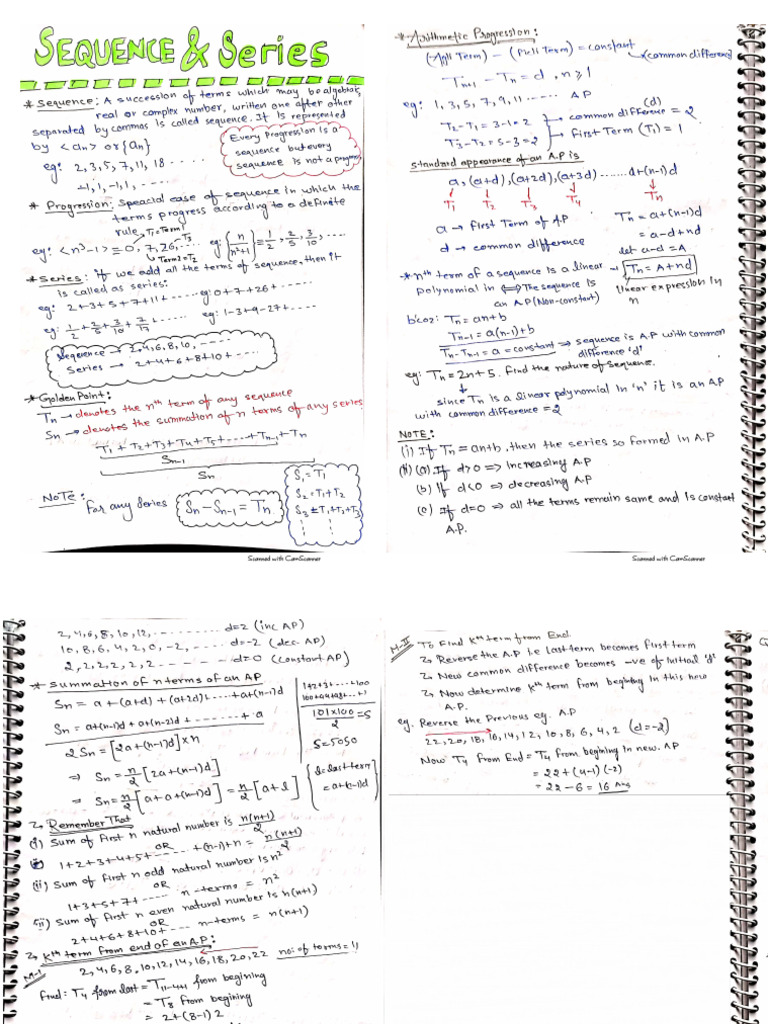 SEQUENCE & Series
* Sequence: A succession of terms which may be algebraic,
real or complex number, written one after other
separated by commas is called sequence. It is represented
by <an> or {an}
Every Progression is a
sequence but every
sequence is not a progress
eg: 2, 3, 5, 7, 11, 18 ....
+1, 1, -1, 1, ....
* Progression: Speacial case of sequence in which the
terms progress according to a definite
rule
T1 = Term 1
T3
eg: <n³-1> = 0, 7, 26, ....
Term 2 = T2
eg: {n/n²+1} = 1/2, 2/5, 3/10, ....
* Series: If we add all the terms of sequence, then it
is called as series:
eg: 2+3+5+7+11+ ..... eg: 0+7+26+ .....
eg: 1/2 + 2/5 + 3/10 + + ..... eg: 1-3+9-27+ ....
Sequence → 2, 4, 6, 8, 10, ....
Series → 2+4+6+8+10+ ....
* Golden Point:
Tn → denotes the nth term of any sequence
Sn → denotes the summation of n terms of any series
T1 + T2 + T3 + T4 + T5 + .... + Tn-1 + Tn
Sn-1
Sn
NOTE: For any Series Sn - Sn-1 = Tn
S1 = T1
S2 = T1+T2
S3 = T1+T2+T3
Scanned with CamScanner
* Arithmetic Progression:
(Agli Term) - (Pichli Term) = constant
(common difference)
Tn+1 - Tn = d, n ≥ 1
eg: 1, 3, 5, 7, 9, 11 ..... AP
(d)
T2-T1 = 3-1 = 2 → common difference = 2
T3-T2 = 5-3 = 2 → First Term (T1) = 1
standard appearance of an A.P is
a, (a+d), (a+2d), (a+3d) ...... a+(n-1)d
T1 T2 T3 T4 Tn
a → First Term of A.P
d → common difference
Tn = a+(n-1)d
= a-d+nd
let a-d = A
Tn = A+nd
linear expression in
n
* nth term of a sequence is a linear
polynomial in ⟺ The sequence is
an AP (Non-constant)
b'coz: Tn = an+b
Tn-1 = a(n-1)+b
Tn-Tn-1 = a = constant ⇒ sequence is A.P with common
difference 'd'
eg: Tn = 2n+5. Find the nature of sequence.
since Tn is a linear polynomial in 'n' it is an AP
with common difference = 2
NOTE:
(i) If Tn = an+b, then the series so formed in A.P
(ii) (a) If d>0 ⇒ increasing A.P
(b) If d<0 ⇒ decreasing A.P
(c) If d=0 ⇒ all the terms remain same and is constant
A.P.
Scanned with CamScanner
2, 4, 6, 8, 10, 12, ........ d=2 (inc AP)
10, 8, 6, 4, 2, 0, -2, ..... d=-2 (dec. AP)
2, 2, 2, 2, 2, 2 ...... d=0 (constant AP)
* Summation of n terms of an AP
Sn = a + (a+d) + (a+2d) + ..... + a+(n-1)d
Sn = a+(n-1)d + a+(n-2)d + ...... + a
2Sn = [2a+(n-1)d] x n
⇒ Sn = n/2 [2a+(n-1)d]
⇒ Sn = n/2 [a+a+(n-1)d] = n/2 [a+l]
1+2+3+ ..... +100
101x100/2 = S
S = 5050
l = last term
= a+(n-1)d
Remember That
(i) Sum of first n natural number is n(n+1)/2
OR
1+2+3+4+5+ ..... +(n-1)+n = n(n+1)/2
(ii) Sum of First n odd natural number is n²
OR
1+3+5+7+ ..... n-terms = n²
Sum of First n even natural number is n(n+1)
OR
2+4+6+8+10+ .... n-terms = n(n+1)
Kth term from end of an A.P:
M-I
2, 4, 6, 8, 10, 12, 14, 16, 18, 20, 22 no: of terms = 11
Find: T4 from last = T11-4+1 from begining
= T8 from begining
= 2+(8-1)2
M-II To Find Kth term from End.
Reverse the A.P i.e last term becomes first term
New common difference becomes -ve of initial 'd'
Now determine Kth term from begining in this new
A.P.
eg. Reverse the Previous eg. A.P
22, 20, 18, 16, 14, 12, 10, 8, 6, 4, 2 (d=-2)
Now T4 from End = T4 from begining in new. AP
= 22+(4-1)(-2)
= 22-6 = 16 Ans